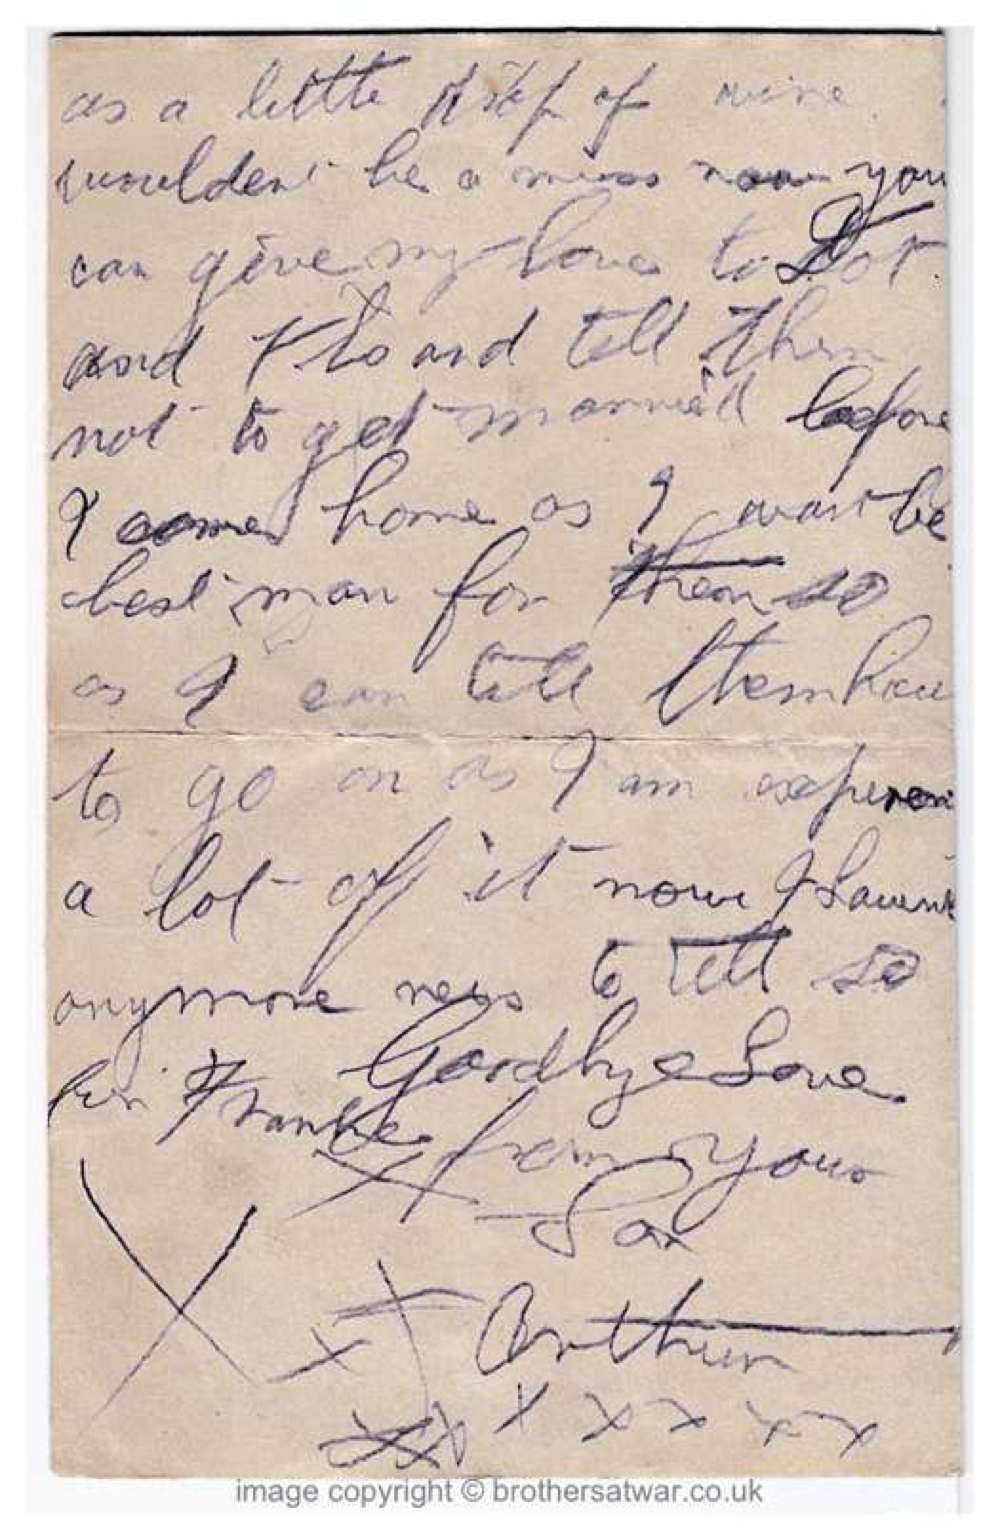 as a little drop of wine
wouldent be a miss now you
can give my love to Dot
and Flo and tell them
not to get married before
I come home as I want be
best man for them so
as I can tell them how
to go on as I am
a lot of it now I havent
anymore news to tell so
Goodbye Love
for Frankie from your
Son
Arthur
X X X X
X X X X X X
image copyright © brothersatwar.co.uk